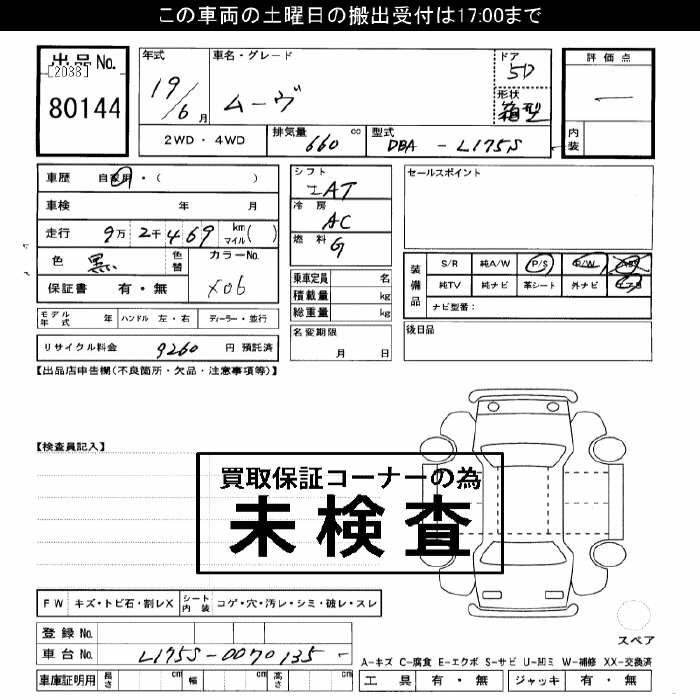 この車両の土曜日の搬出受付は17:00まで
出品No. [2038] 80144
年式 19/6月
車名・グレード ムーヴ
ドア 5D
形状 箱型
評価点 一
内装
2WD・4WD 排気量 660 cc 型式 DBA - L175S
車歴 自家用・( )
車検 年 月
走行 9万2千469 km マイル( )
色 黒 色替 カラーNo. X06
保証書 有・無
モデル年式 年 ハンドル 左・右 ディーラー・並行
リサイクル料金 9260 円 預託済
シフト IAT
冷房 AC
燃料 G
乗車定員 名
積載量 kg
総重量 kg
名変期限 月 日
セールスポイント
装備品 S/R 純A/W P/S P/W ABS
純TV 純ナビ 革シート 外ナビ エアB
ナビ型番:
後日品
【出品店申告欄(不良箇所・欠品・注意事項等)】
【検査員記入】
買取保証コーナーの為
未検査
FW キズ・トビ石・割レX シート内装 コゲ・穴・汚レ・シミ・破レ・スレ
登録No.
車台No. L175S-0070135 -
車庫証明用 長さ cm 幅 cm 高さ cm
スペア
A-キズ C-腐食 E-エクボ S-サビ U-凹ミ W-補修 XX-交換済
工具 有・無 ジャッキ 有・無